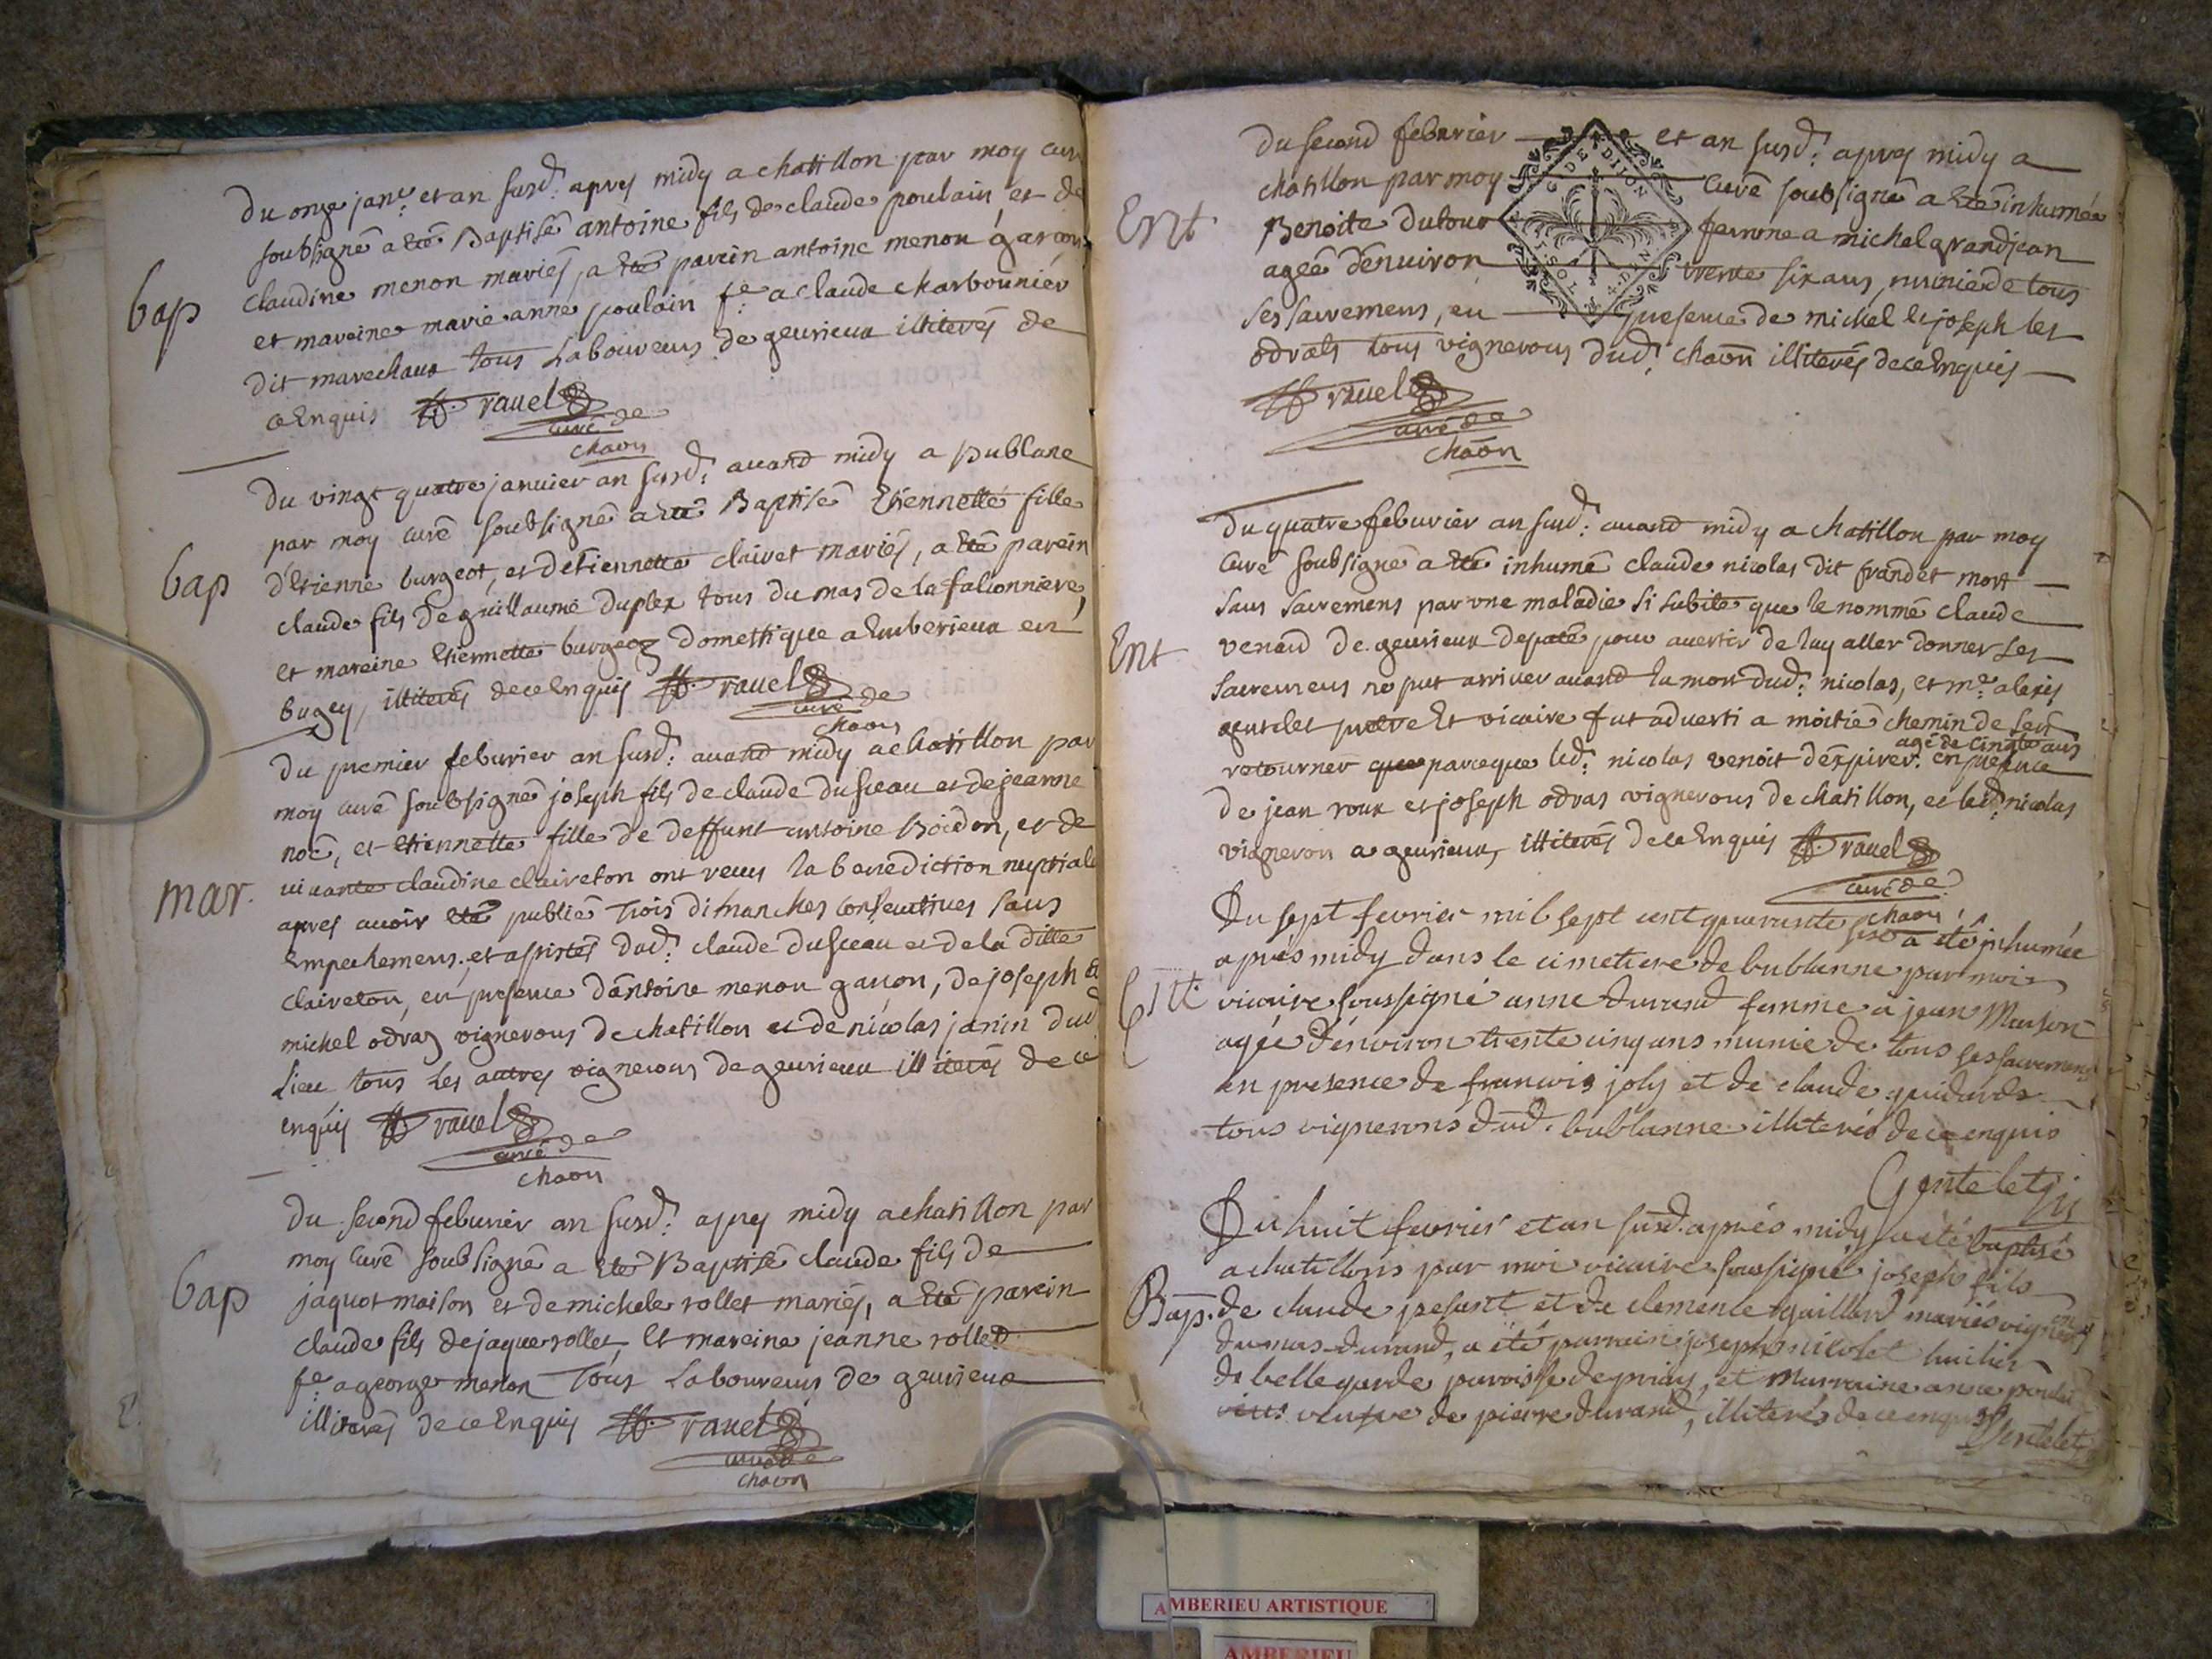 du onze janr. et an susd. apres midy a chatillon par moy curé
soubsigné a eté Baptisé antoine fils de claude poulain, et de
bap
claudine menon mariés, a eté parein antoine menon garcon
et mareine marie anne poulain fe. a claude charbounier
dit marechaux tous Laboureurs de gevrieux illiterés de
ce Enquis ravel
curé de
chaon
du vingt quatre janvier an susd. avand midy a publane
par moy curé soubsigné a eté Baptisé Etiennette fille
bap
d'Etienne burgeot, et d'Etiennette clairet mariés, a eté parein
claude fils de guillaume duplex tous du mas de la falconniere,
et mareine Etiennette burgeoz domestique a Emberieux en
bugey, illiterés de ce Enquis ravel
curé de
chaon
du premier feburier an susd. avand midy a chatillon par
moy curé soubsigné joseph fils de claude dusceau et de jeanne
noé, et Etiennette fille de deffunt antoine Boidon, et de
mar.
vivante claudine claireton ont receus la benediction nuptiale
apres avoir eté publiés trois dimanches consecutives sans
Empechemens. et assistés dud. claude dusceau et de la ditte
claireton, en presence d'antoine menon garcon, de joseph et
michel odraz vignerons de chatillon et de nicolas janin dud.
Lieu tous les autres vignerons de gevrieux illiterés de ce
enquis ravel
curé de
chaon
du second feburier an susd. apres midy a chatillon par
moy curé soubsigné a eté Baptisé claude fils de
bap
jaquot maison et de michele rollet mariés, a eté parein
claude fils de jaque rollet, et mareine jeanne rollet
fe. a george menon tous Laboureurs de gevrieux
illiterés de ce Enquis ravel
curé de
chaon
du second feburier et an susd. apres midy a
chatillon par moy curé soubsigné a eté inhumée
Ent.
Benoite dutour femme a michel grandjean
ageé d'environ trente six ans, munie de tous
ses sacremens, en presence de michel et joseph les
odrats tous vignerons dud. chaon illiterés de ce Enquis
G. DE DIJON
4. DEN
ravel
curé de
chaon
du quatre feburier an susd. avand midy a chatillon par moy
curé soubsigné a eté inhumé claude nicolas dit frandet mort
sans sacremens par une maladie si subite que le nommé claude
Ent
venard de gevrieux deputé pour avertir de luy aller donner les
sacremens ne put arriver avand la mort dud. nicolas, et mre. alexis
gentelet pretre et vicaire fut adverti a moitié chemin de s'en
retourner parceque led. nicolas venoit d'expirer. agé de cinqte. ans en presence
de jean roux et joseph odras vignerons de chatillon, et led. nicolas
vigneron a gevrieux, illiterés de ce Enquis ravel
curé de
chaon
Du sept fevrier mil sept cent quarante six a été inhumée
apres midy dans le cimetiere de bublanne par moi
Ent
vicaire soussigné anne durand femme a jean Maison
agée d'environ trente cinq ans munie de tous ses sacremens
en presence de francois joly et de claude guidard
tous vignerons dud. bublanne illiterés de ce enquis
Gentelet
Du huit fevrier et an susd. aprés midy a eté baptisé
a chatillons par moi vicaire soussigné joseph fils
Bap.
de claude pesant et de clemence gaillard mariés vignerons
du mas durand, a été parrain joseph nicolet huilier
de bellegarde paroisse de priay, et marraine anne poulai
veufve de pierre durand, illiterés de ce enquis
Gentelet
AMBERIEU ARTISTIQUE
AMBERIEU